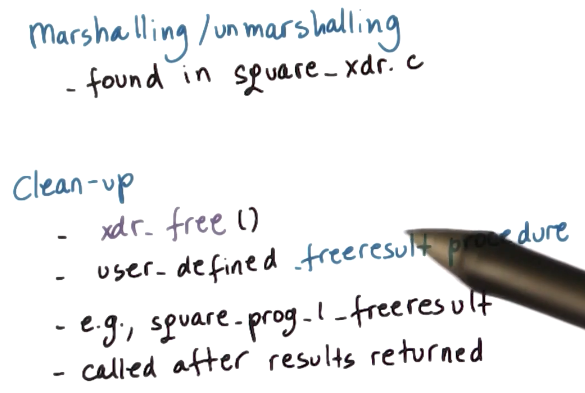 Marshalling/unmarshalling
- found in square_xdr.c
Clean-up
- xdr_free()
- user_defined _freeresult procedure
- e.g., square_prog_1_freeresult
- called after results returned